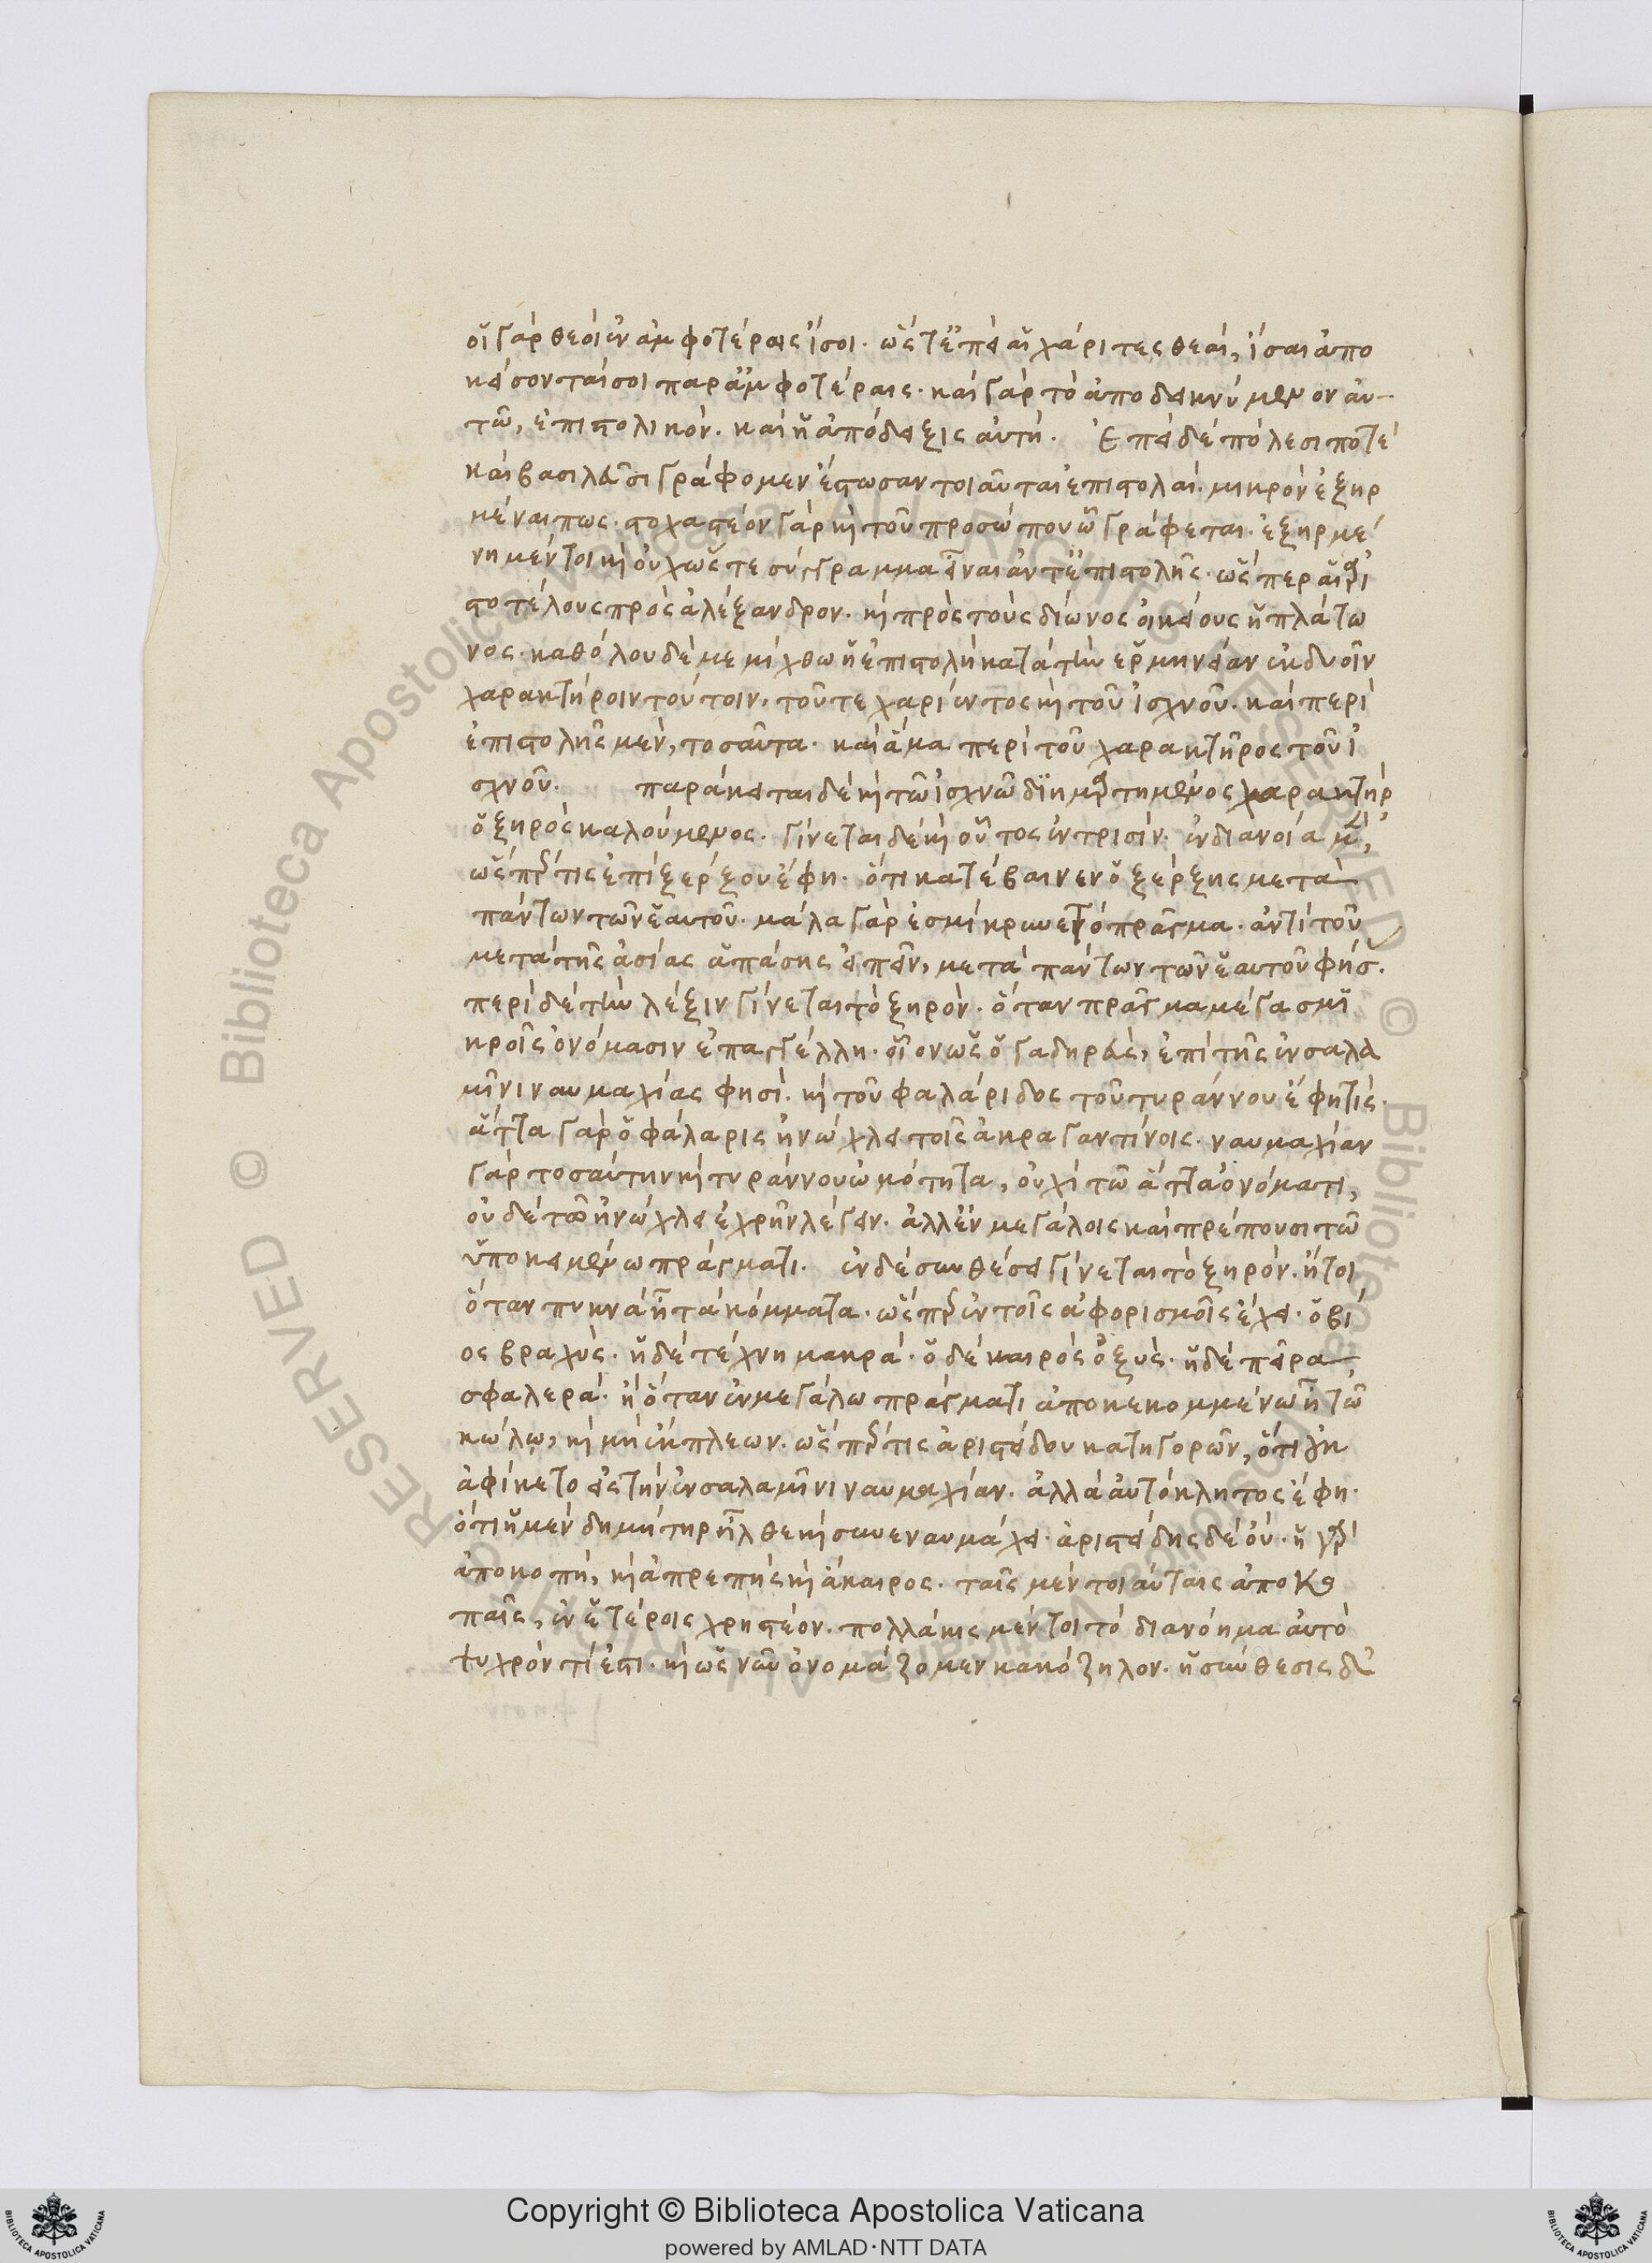 οἱ γὰρ θεοὶ ἐν ἀμφοτέροις ἴσοι. ὥστ' ἐπεὶ αἱ χάριτες θεαί, ἴσαι ἀπο
κείσονταί σοι παρ' ἀμφοτέραις. καὶ γὰρ τὸ ἀποδεικνύμενον αὐ-
τῶ, ἐπιστολικόν. καὶ ἡ ἀπόδειξις αὐτή. Ἐπεὶ δὲ πόλεσι ποτὲ
καὶ βασιλεῦσι γράφομεν ἔστωσαν τοιαῦται ἐπιστολαί. μικρὸν ἐξηρ
μέναι πως. στοχαστέον γὰρ καὶ τοῦ προσώπου ὧ γράφεται. ἐξηρμέ
νη μέντοι καὶ οὐχ ὥστε σύγγραμμα εἶναι ἀντ' ἐπιστολῆς. ὥσπερ αἱ ἀρι
στοτέλους πρὸς ἀλέξανδρον. καὶ πρὸς τοὺς δίωνος οἰκείους ἡ πλάτω
νος. καθόλου δὲ μεμίχθω ἡ ἐπιστολὴ κατὰ τὴν ἑρμηνείαν ἐκ δυοῖν
χαρακτήροιν τούτοιν, τοῦ τε χαρίεντος καὶ τοῦ ἰσχνοῦ. καὶ περὶ
ἐπιστολῆς μὲν, τοσαῦτα. καὶ ἅμα περὶ τοῦ χαρακτῆρος τοῦ ἰ
σχνοῦ. παράκειται δὲ καὶ τῶ ἰσχνῶ διημαρτημένος χαρακτὴρ
ὁ ξηρὸς καλούμενος. γίνεται δὲ καὶ οὗτος ἐν τρισίν. ἐν διανοία μὲν,
ὥσπερ τις ἐπὶ ξέρξου ἔφη. ὅτι κατέβαινεν ὁ ξέρξης μετὰ
πάντων τῶν ἑαυτοῦ. μάλα γὰρ ἐσμίκρυνε τὸ πρᾶγμα. ἀντὶ τοῦ
μετὰ τῆς ἀσίας ἁπάσης εἰπεῖν, μετὰ πάντων τῶν ἑαυτοῦ φήσ.
περὶ δὲ τὴν λέξιν γίνεται τὸ ξηρὸν. ὅταν πρᾶγμα μέγα σμι
κροῖς ὀνόμασιν ἐπαγγέλλη. οἷον ὡς ὁ γαδηρεὺς, ἐπὶ τῆς ἐν σαλα
μῖνι ναυμαχίας φησὶ. καὶ τοῦ φαλάριδος τοῦ τυράννου ἔφη τὶς.
ἅττα γὰρ ὁ φάλαρις ἠνώχλει τοῖς ἀκραγαντίνοις. ναυμαχίαν
γὰρ τοσαύτην καὶ τυράννου ὠμότητα, οὐχὶ τῶ ἅττα ὀνόματι,
οὐδὲ τῶ ἠνώχλει ἐχρῆν λέγειν. ἀλλ' ἐν μεγάλοις καὶ πρέπουσι τῶ
ὑποκειμένω πράγματι. ἐν δὲ συνθέσει γίνεται τὸ ξηρόν. ἤτοι
ὅταν πυκνὰ ἦ τὰ κόμματα. ὥσπερ ἐν τοῖς ἀφορισμοῖς ἔχει. ὁ βί
ος βραχὺς. ἡ δὲ τέχνη μακρά. ὁ δὲ καιρὸς ὀξὺς. ἡ δὲ πεῖρα
σφαλερά. ἢ ὅταν ἐν μεγάλω πράγματι ἀποκεκομμένω ἦ τῶ
κώλω, καὶ μὴ ἔκπλεων. ὥσπερ τις ἀριστείδου κατηγορῶν, ὅτι οὐκ
ἀφίκετο εἰς τὴν ἐν σαλαμῖνι ναυμαχίαν. ἀλλὰ αὐτόκλητος ἔφη.
ὅτι ἡ μὲν δημήτηρ ἦλθε καὶ συνεναυμάχει. ἀριστείδης δὲ οὔ. ἡ γὰρ
ἀποκοπὴ, καὶ ἀπρεπὴς καὶ ἄκαιρος. ταῖς μέντοι αύταις ἀποκο
παῖς, ἐν ἑτέροις χρηστέον. πολλάκις μέντοι τὸ διανόημα αὐτὸ
ψυχρόν τί ἐστι. καὶ ὡς νῦν ὀνομάζομεν κακόζηλον. ἡ σύνθεσις δὲ
Copyright © Biblioteca Apostolica Vaticana
powered by AMLAD·NTT DATA